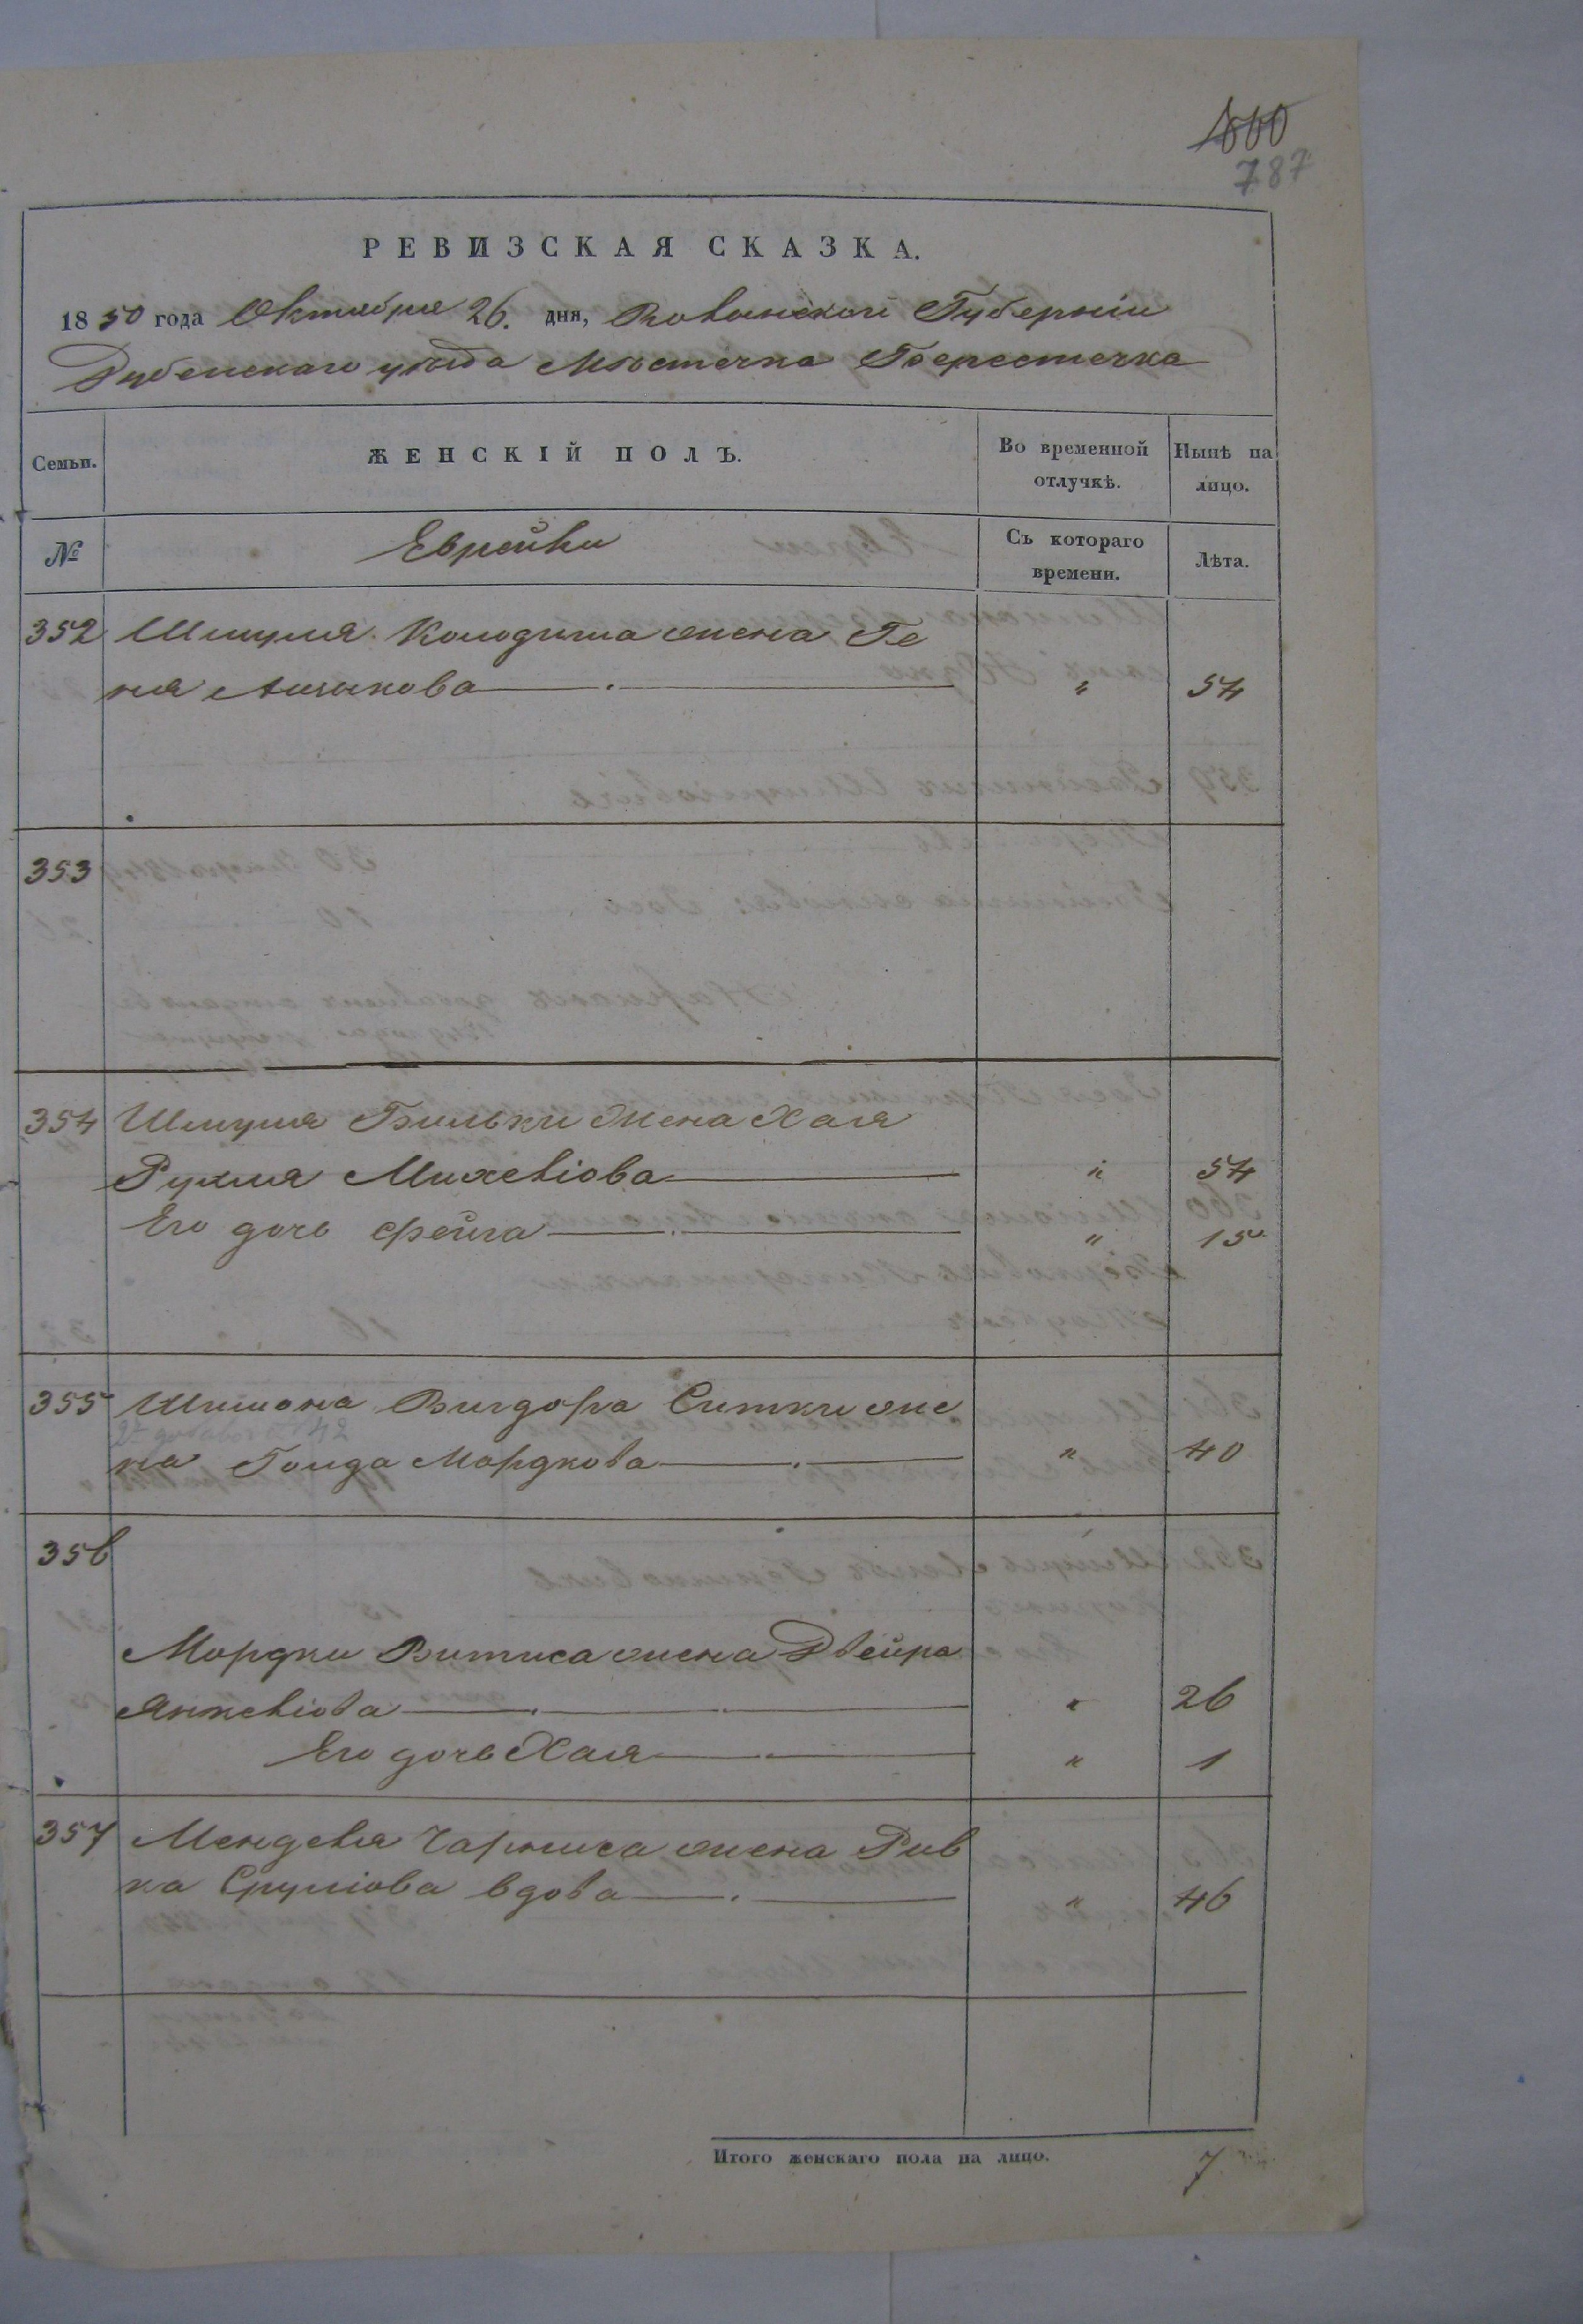 787
РЕВИЗСКАЯ СКАЗКА.
1850 года Октября 26. дня, Волынской Губерніи
Дубенскаго уѣзда Мѣстечка Берестечка
Семьи.
ЖЕНСКІЙ ПОЛЪ.
Во временной отлучкѣ.
Нынѣ на лицо.
№
Еврейки
Съ котораго времени.
Лѣта.
352 Шмуля Колодыша жена Ге
ня Ашикова " 54
353
354 Шмуля Бильки жена Хая
Рухля Михеліова " 54
Его дочь Фейга " 15
355 Шимона Вигдора Ситки же
42
на Голда Мордкова " 40
356
Мордки Витиса жена Двейра
Янкеліова " 26
Его дочь Хая " 1
357 Менделя Чарниса жена Рив
ка Сруліова вдова " 46
Итого женскаго пола на лицо. 7